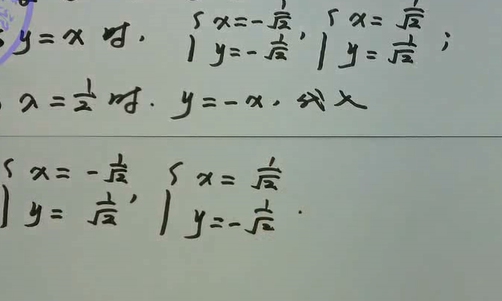 y = x 时. { x = -1/√2, y = -1/√2, { x = 1/√2, y = 1/√2;
λ = 1/2 时. y = -x. 代入
{ x = -1/√2, y = 1/√2, { x = 1/√2, y = -1/√2.